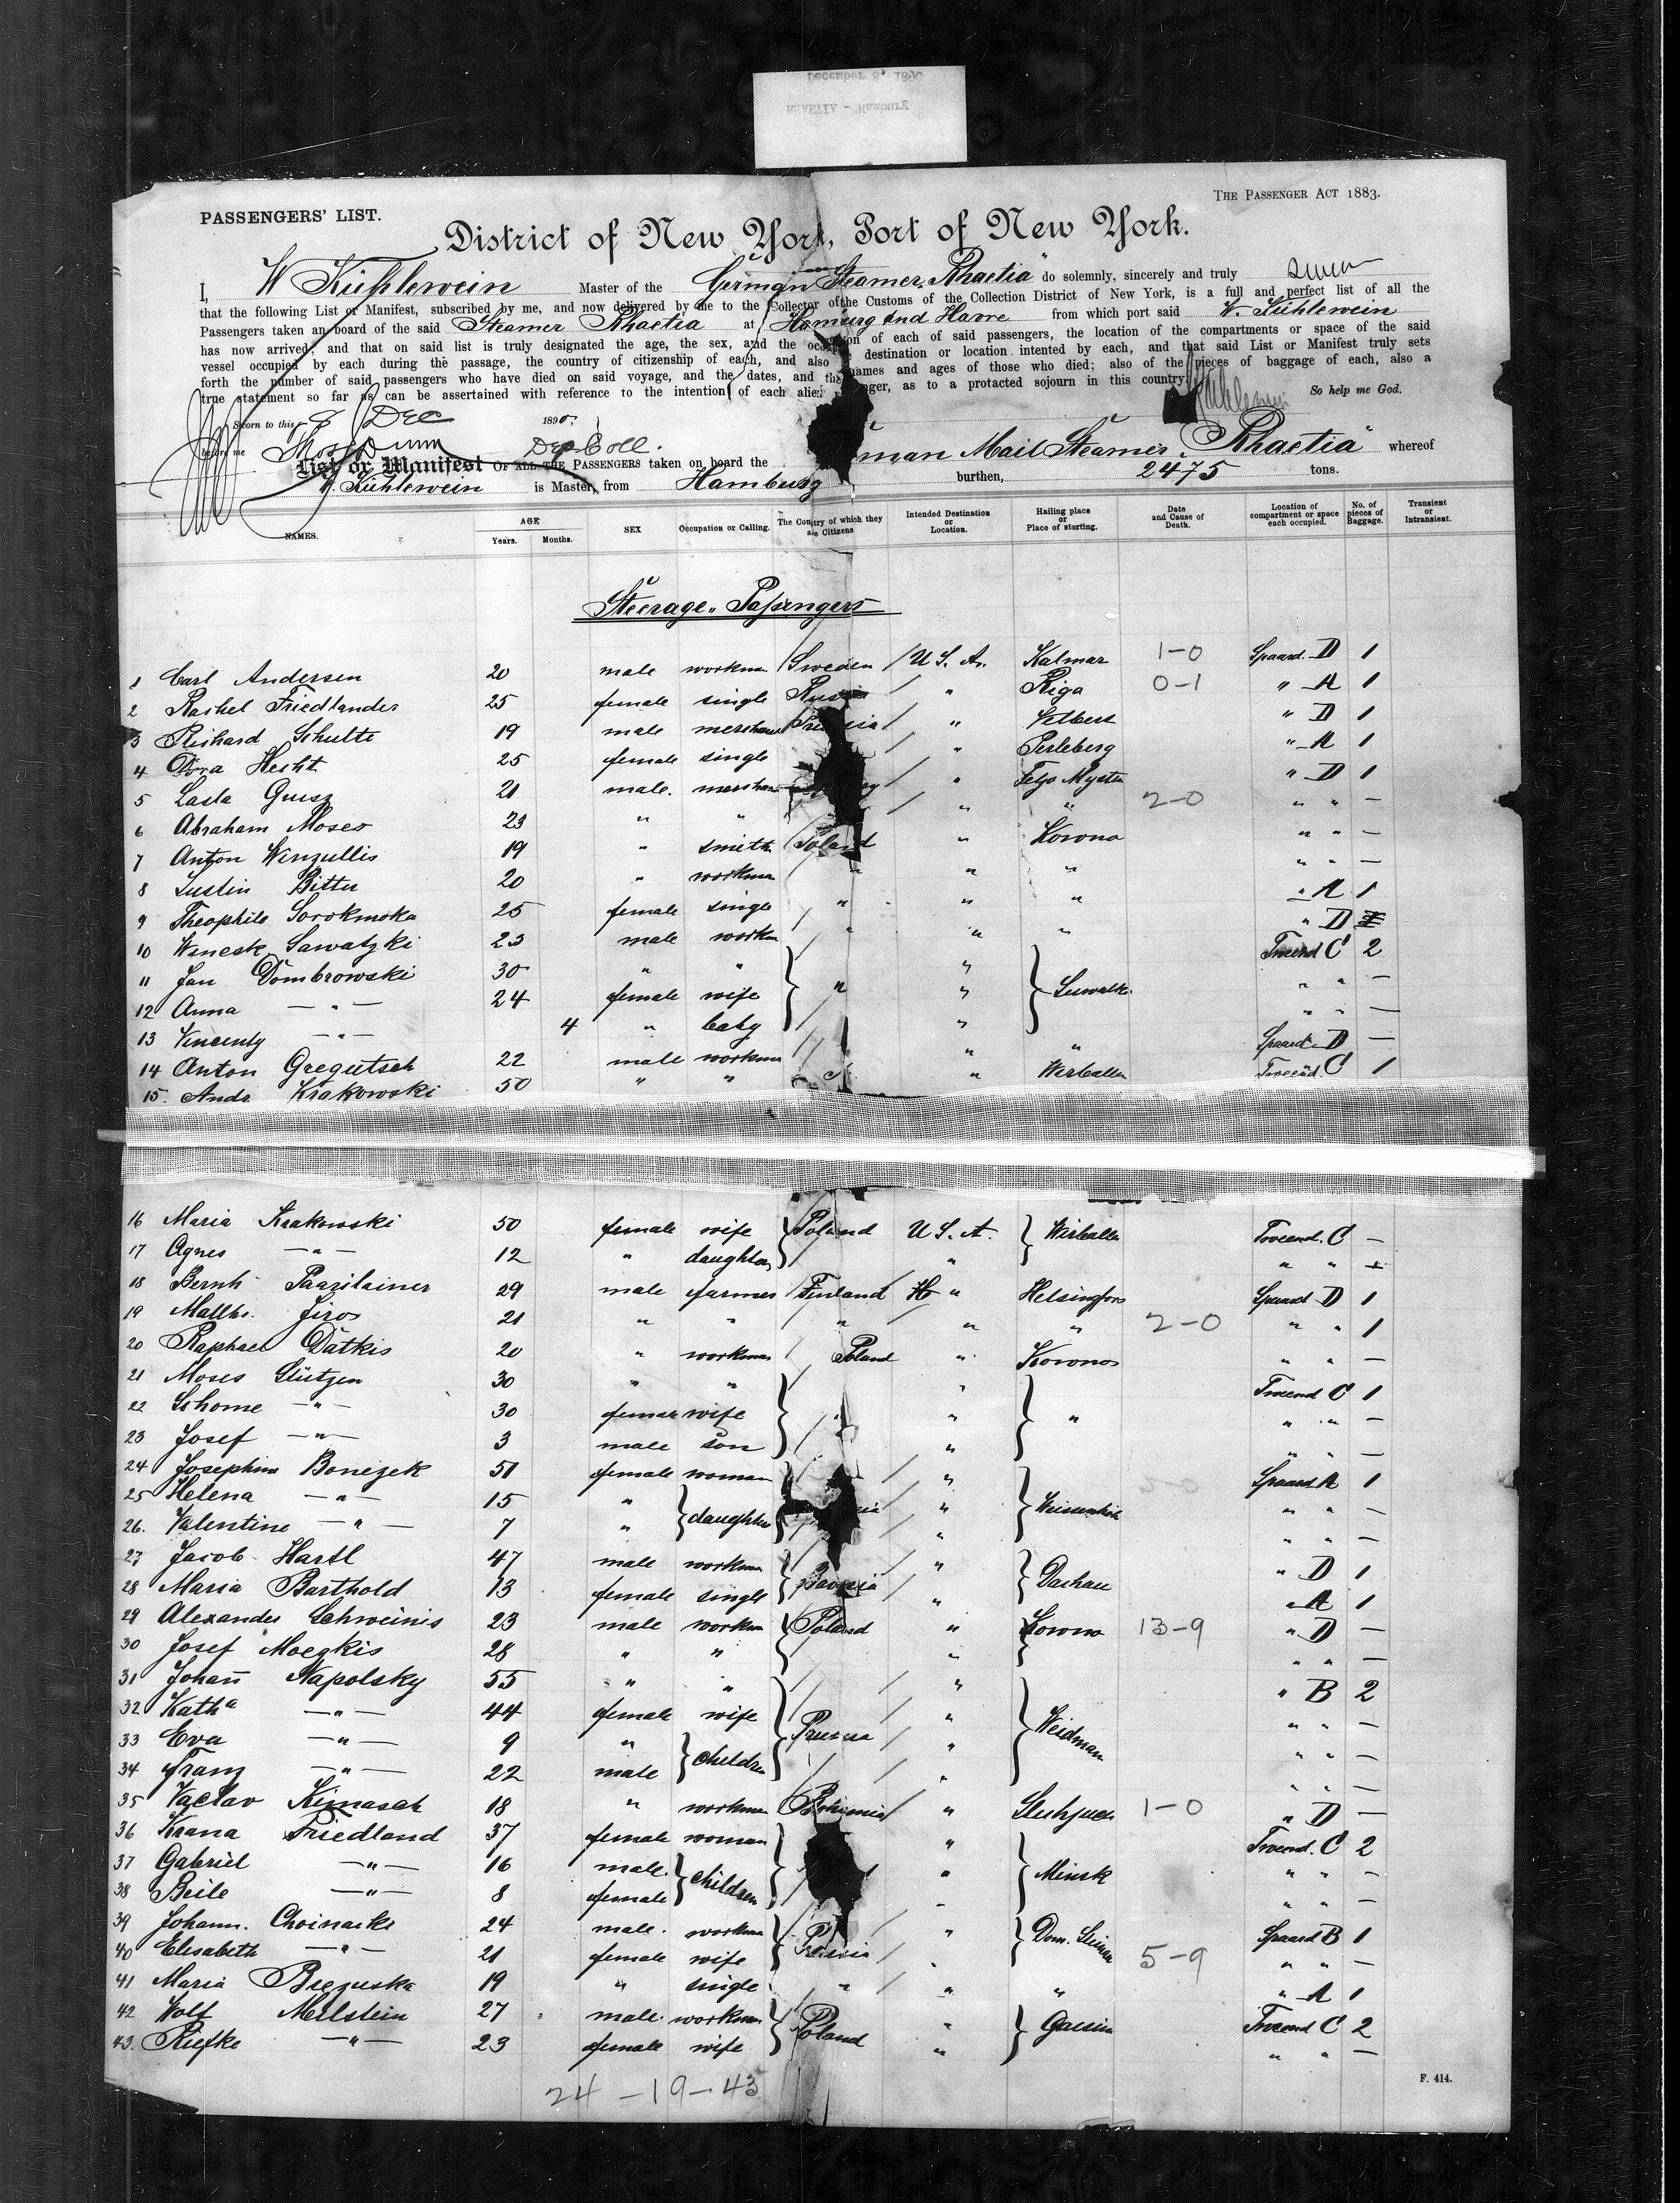 December 8, 1890
RHAETIA - Hamburg
PASSENGERS' LIST.
THE PASSENGER ACT 1883.
District of New York, Port of New York.
I, W Kühlewein Master of the German Steamer "Rhaetia" do solemnly, sincerely and truly swear
that the following List or Manifest, subscribed by me, and now delivered by me to the Collector of the Customs of the Collection District of New York, is a full and perfect list of all the
Passengers taken an board of the said Steamer Rhaetia at Hamburg and Havre from which port said W. Kühlewein
has now arrived; and that on said list is truly designated the age, the sex, and the of each of said passengers, the location of the compartments or space of the said
vessel occupied by each during the passage, the country of citizenship of each, and also destination or location intented by each, and that said List or Manifest truly sets
forth the number of said passengers who have died on said voyage, and the dates, and names and ages of those who died; also of the pieces of baggage of each, also a
true statement so far as can be ascertained with reference to the intention of each alien as to a protacted sojourn in this country. So help me God.
Sworn to this 8 Dec 1890
before me Dep Coll.
List or Manifest OF ALL THE PASSENGERS taken on board the man Mail Steamer "Rhaetia" whereof
W. Kühlewein is Master, from Hamburg burthen, 2475 tons.
NAMES. AGE Years. Months. SEX Occupation or Calling. The Country of which they are Citizens Intended Destination or Location. Hailing place or Place of starting. Date and Cause of Death. Location of compartment or space each occupied. No. of pieces of Baggage. Transient or Intransient.
Steerage Passengers
1 Carl Andersen 20 male workman Sweden U.S.A. Kalmar 1-0 Spaard. D 1
2 Rachel Friedlander 25 female single Russia " Riga 0-1 " A 1
3 Richard Schulte 19 male merchant " " D 1
4 Dora Hecht 25 female single " Perleberg " A 1
5 Lasla Grusz 21 male. merchant " " D 1
6 Abraham Moses 23 " " " " 2-0 " " —
7 Anton Winzullis 19 " smith Poland " Kowno " " —
8 Justin Bitter 20 " workman " " " " " —
9 Theophile Sorokmoka 25 female single " " " " A 1
10 Wincek Sawatzki 23 male workm " " " " D
11 Jan Dombrowski 30 " " " Tweend C 2
12 Anna — " — 24 female wife " " Suwalk " " —
13 Vincenty — " — 4 " baby " " " —
14 Anton Gregutsch 22 male workman " " Spaard D —
15. Andr Krakowski 50 " " " Wirballen Tweend. C 1
16 Maria Krakowski 50 female wife Poland U.S.A. Wirballen Tweend. C —
17 Agnes — " — 12 " daughter " " " —
18 Bernh Paazilainer 29 male farmer Finland " Helsingfors Spaard D 1
19 Matths. Jiros 21 " " " " " 2-0 " " 1
20 Raphael Datkis 20 " workman Poland " Kowno " " —
21 Moses Glützen 30 " " " Tweend C 1
22 Schome — " — 30 female wife " " " " " —
23 Josef — " — 3 male son " " " —
24 Josephine Bonezek 51 female woman " Spaard A 1
25 Helena — " — 15 " daughter " " " —
26. Valentine — " — 7 " " " " —
27 Jacob Hartl 47 male workman Bavaria " Dachau " D 1
28 Maria Barthold 13 female single " " A 1
29 Alexander Schweinis 23 male workm Poland " Kowno 13-9 " D —
30 Josef Moczkis 28 " " " " " —
31 Johann Napolsky 55 " " " " B 2
32 Katha — " — 44 female wife Prussia " Weidman " " —
33 Eva — " — 9 " children " " " —
34 Franz — " — 22 male " " " —
35 Vaclav Kimasch 18 " workman Bohemia " 1-0 " D —
36 Krana Friedland 37 female woman " Tweend. C 2
37 Gabriel — " — 16 male. children " Minsk " " —
38 Beile — " — 8 female " " " —
39 Johann. Choinacki 24 male. workman Prussia " Spaard B 1
40 Elisabeth — " — 21 female wife " 5-9 " " —
41 Maria Brezuska 19 " single " " " " A 1
42 Wolf Milstein 27 male. workman Poland " Tweend C 2
43. Riefke — " — 23 female wife " " " —
24 - 19 - 43
F. 414.